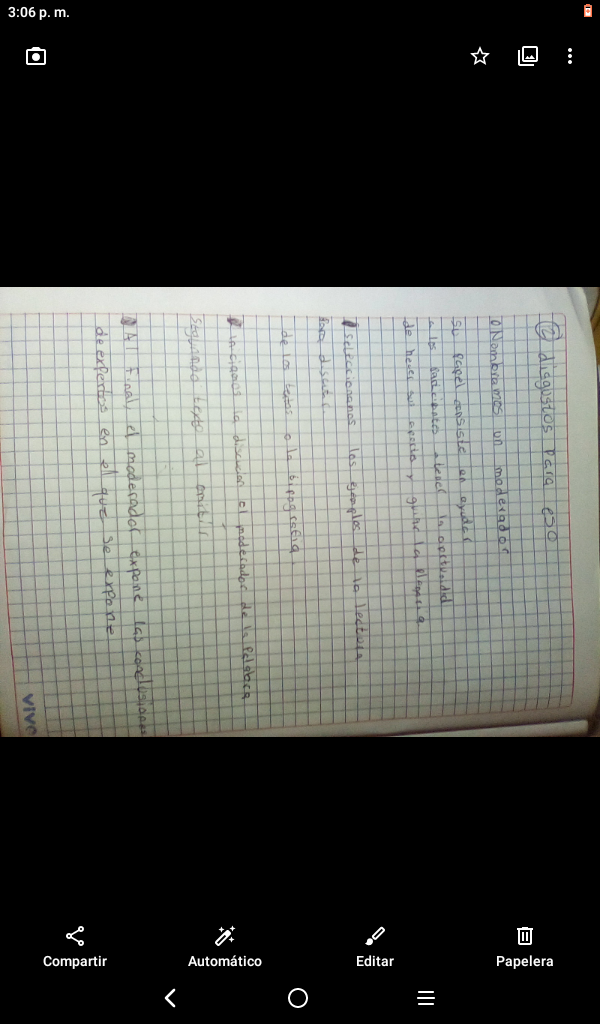 3:06 p. m.
② disgustos para eso
Nombramos un moderador
su papel consiste en ayudar
a los participantes a tener la oportunidad
de hacer su aporte y guiar la
seleccionamos los ejemplos de la lectura
para discutir
de los textos o la tipografia.
iniciamos la discucion el moderador de la Palabra
segundo texto al
Al final, el moderador expone las conclusiones
de expertos en el que se expone
vivo
Compartir
Automático
Editar
Papelera